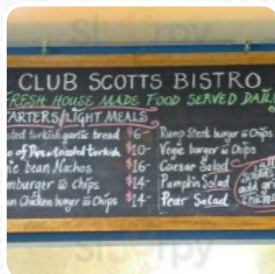 CLUB SCOTTS BISTRO
FRESH HOUSE MADE FOOD SERVED
STARTERS/LIGHT MEALS
turkish garlic bread $6-
of Dips & toasted turkish $10-
bean Nachos $16-
mburger & Chips $14-
Chicken burger & Chips $14-
Rump Steak burger & Chips
Vegie burger & Chips
Caesar Salad
Pumpkin Salad
Pear Salad
add